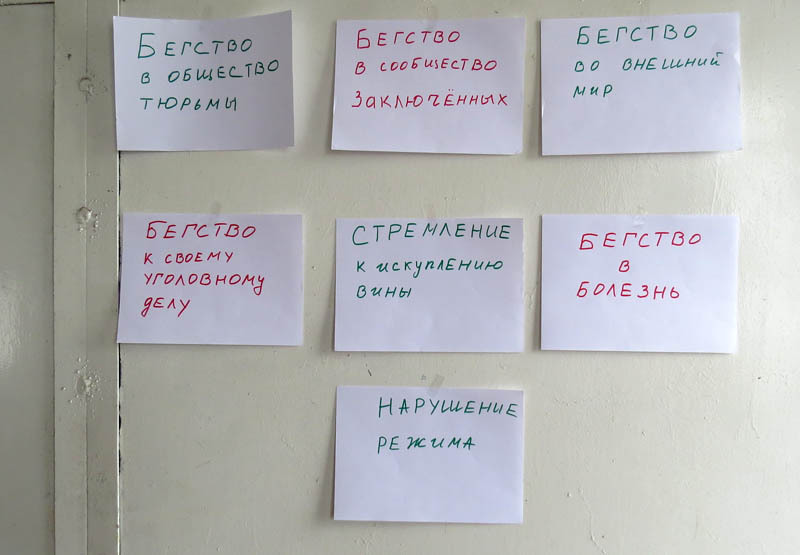 БЕГСТВО
В ОБЩЕСТВО
ТЮРЬМЫ
БЕГСТВО
В СООБЩЕСТВО
ЗАКЛЮЧЁННЫХ
БЕГСТВО
ВО ВНЕШНИЙ
МИР
БЕГСТВО
К СВОЕМУ
УГОЛОВНОМУ
ДЕЛУ
СТРЕМЛЕНИЕ
К ИСКУПЛЕНИЮ
ВИНЫ
БЕГСТВО
В
БОЛЕЗНЬ
НАРУШЕНИЕ
РЕЖИМА